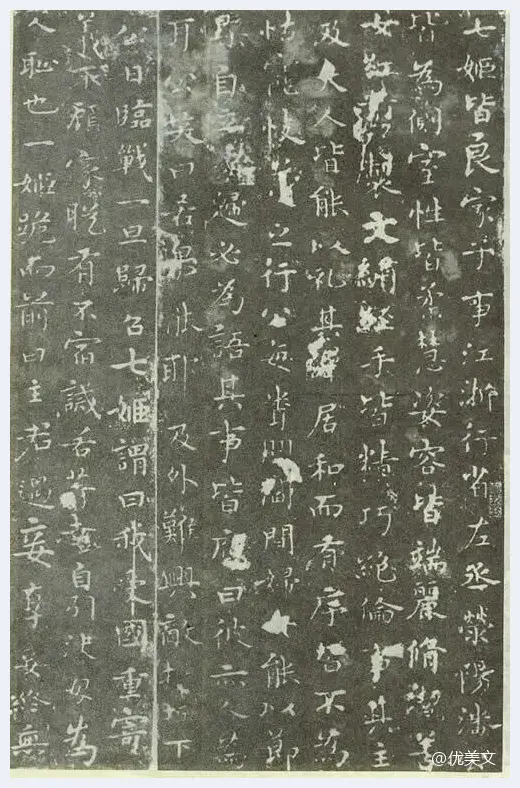 七姬皆良家子事江浙行省左丞滎陽潘
皆為側室性皆柔慧姿容皆端麗脩潔善
女紅製文繡經手皆精巧絕倫事其主
及夫人皆能以礼其羣居和而有序皆不為
怙寵忮之行公每閭閻婦女能以節
自立退必為語其事皆應曰彼亦人為
耳公笑曰若果能耶及外難興敵抵城下
公日臨戰一旦歸召七姬謂曰我受國重寄
義不顧家脫有不宿誡若等宜自引決毋為
人恥也一姬跪而前曰主君遇妾厚妾終無
@优美文